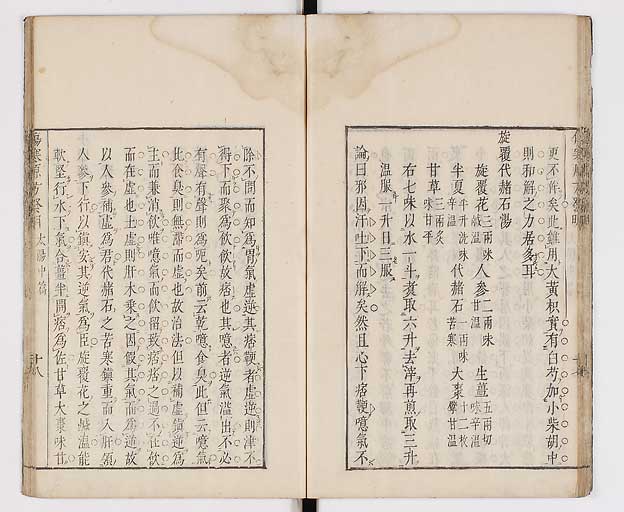 更不許矣此雖用大黃枳實有白芍加小柴胡中
則和解之力居多耳
旋覆代赭石湯
旋覆花 三兩味鹹溫 人參 二兩味甘溫 生薑 五兩切味辛溫
半夏 半升洗味辛溫 代赭石 一兩味苦寒 大棗 十二枚擘甘溫
甘草 三兩炙味甘平
右七味以水一斗煑取六升去滓再煎取三升
溫服一升日三服
論曰邪因汗吐下而解矣然且心下痞鞕噫氣不
除不問而知爲胃氣虛逆其痞鞕者虛逆則津不
得下而聚爲飲飲故痞也其噫者逆氣溫出不必
有聲有聲則爲呃矣前云乾噫食臭此但云噫氣
此食臭則無滯而虛也故治法但以補虛鎮逆爲
主而兼消飲唯噫氣而飲留致痞痞之過不在飲
而在虛也土虛則肝木乘之因假其氣而爲逆故
以人參補虛爲君代赭石之苦寒鎮重而入肝領
人參下行以鎮安其逆氣爲臣旋覆花之鹹溫能
軟堅行水下氣合薑半開痞爲佐甘草大棗味甘
太陽中篇